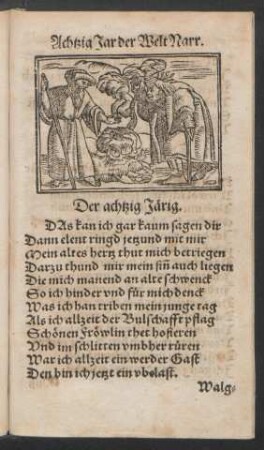 Achtzig Jar der Welt Narr.
Der achtzig Järig.
DAs kan ich gar kaum sagen dir
Dann elent ringd jetzund mit mir
Mein altes hertz thut mich betriegen
Darzu thund mir mein siñ auch liegen
Die mich manend an alte schwenck
So ich hinder vnd für mich denck
Was ich han triben mein junge tag
Als ich allzeit der Bulschafft pflag
Schönen Fröwlin thet hofieren
Vnd im schlitten vmbher rüren
War ich allzeit ein werder Gast
Den bin ich jetzt ein vbelast.
Walg⸗